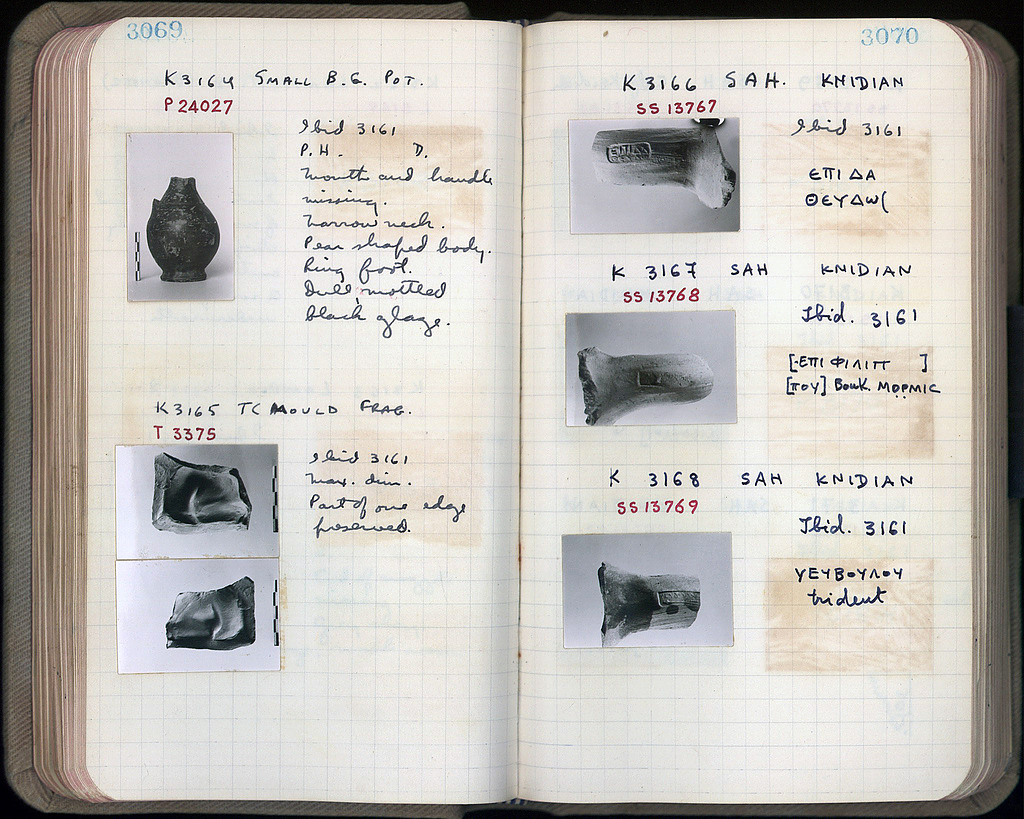 3069
K 3164 SMALL B.G. POT.
P 24027
Ibid 3161
P.H. D.
Mouth and handle
missing.
Narrow neck.
Pear shaped body.
Ring foot.
Dull, mottled
black glaze.
K 3165 TC MOULD FRAG.
T 3375
Ibid 3161
Max. dim.
Part of one edge
preserved.
3070
K 3166 SAH. KNIDIAN
SS 13767
Ibid 3161
ΕΠΙ ΔΑ
ΘΕΥΔω(
K 3167 SAH KNIDIAN
SS 13768
Ibid. 3161
[ΕΠΙ ΦΙΛΙΠ ]
[ΠΟΥ] Bouk. ΜΟΡΜΙC
K 3168 SAH KNIDIAN
SS 13769
Ibid. 3161
ΥΕΥΒΟΥΛΟΥ
trident